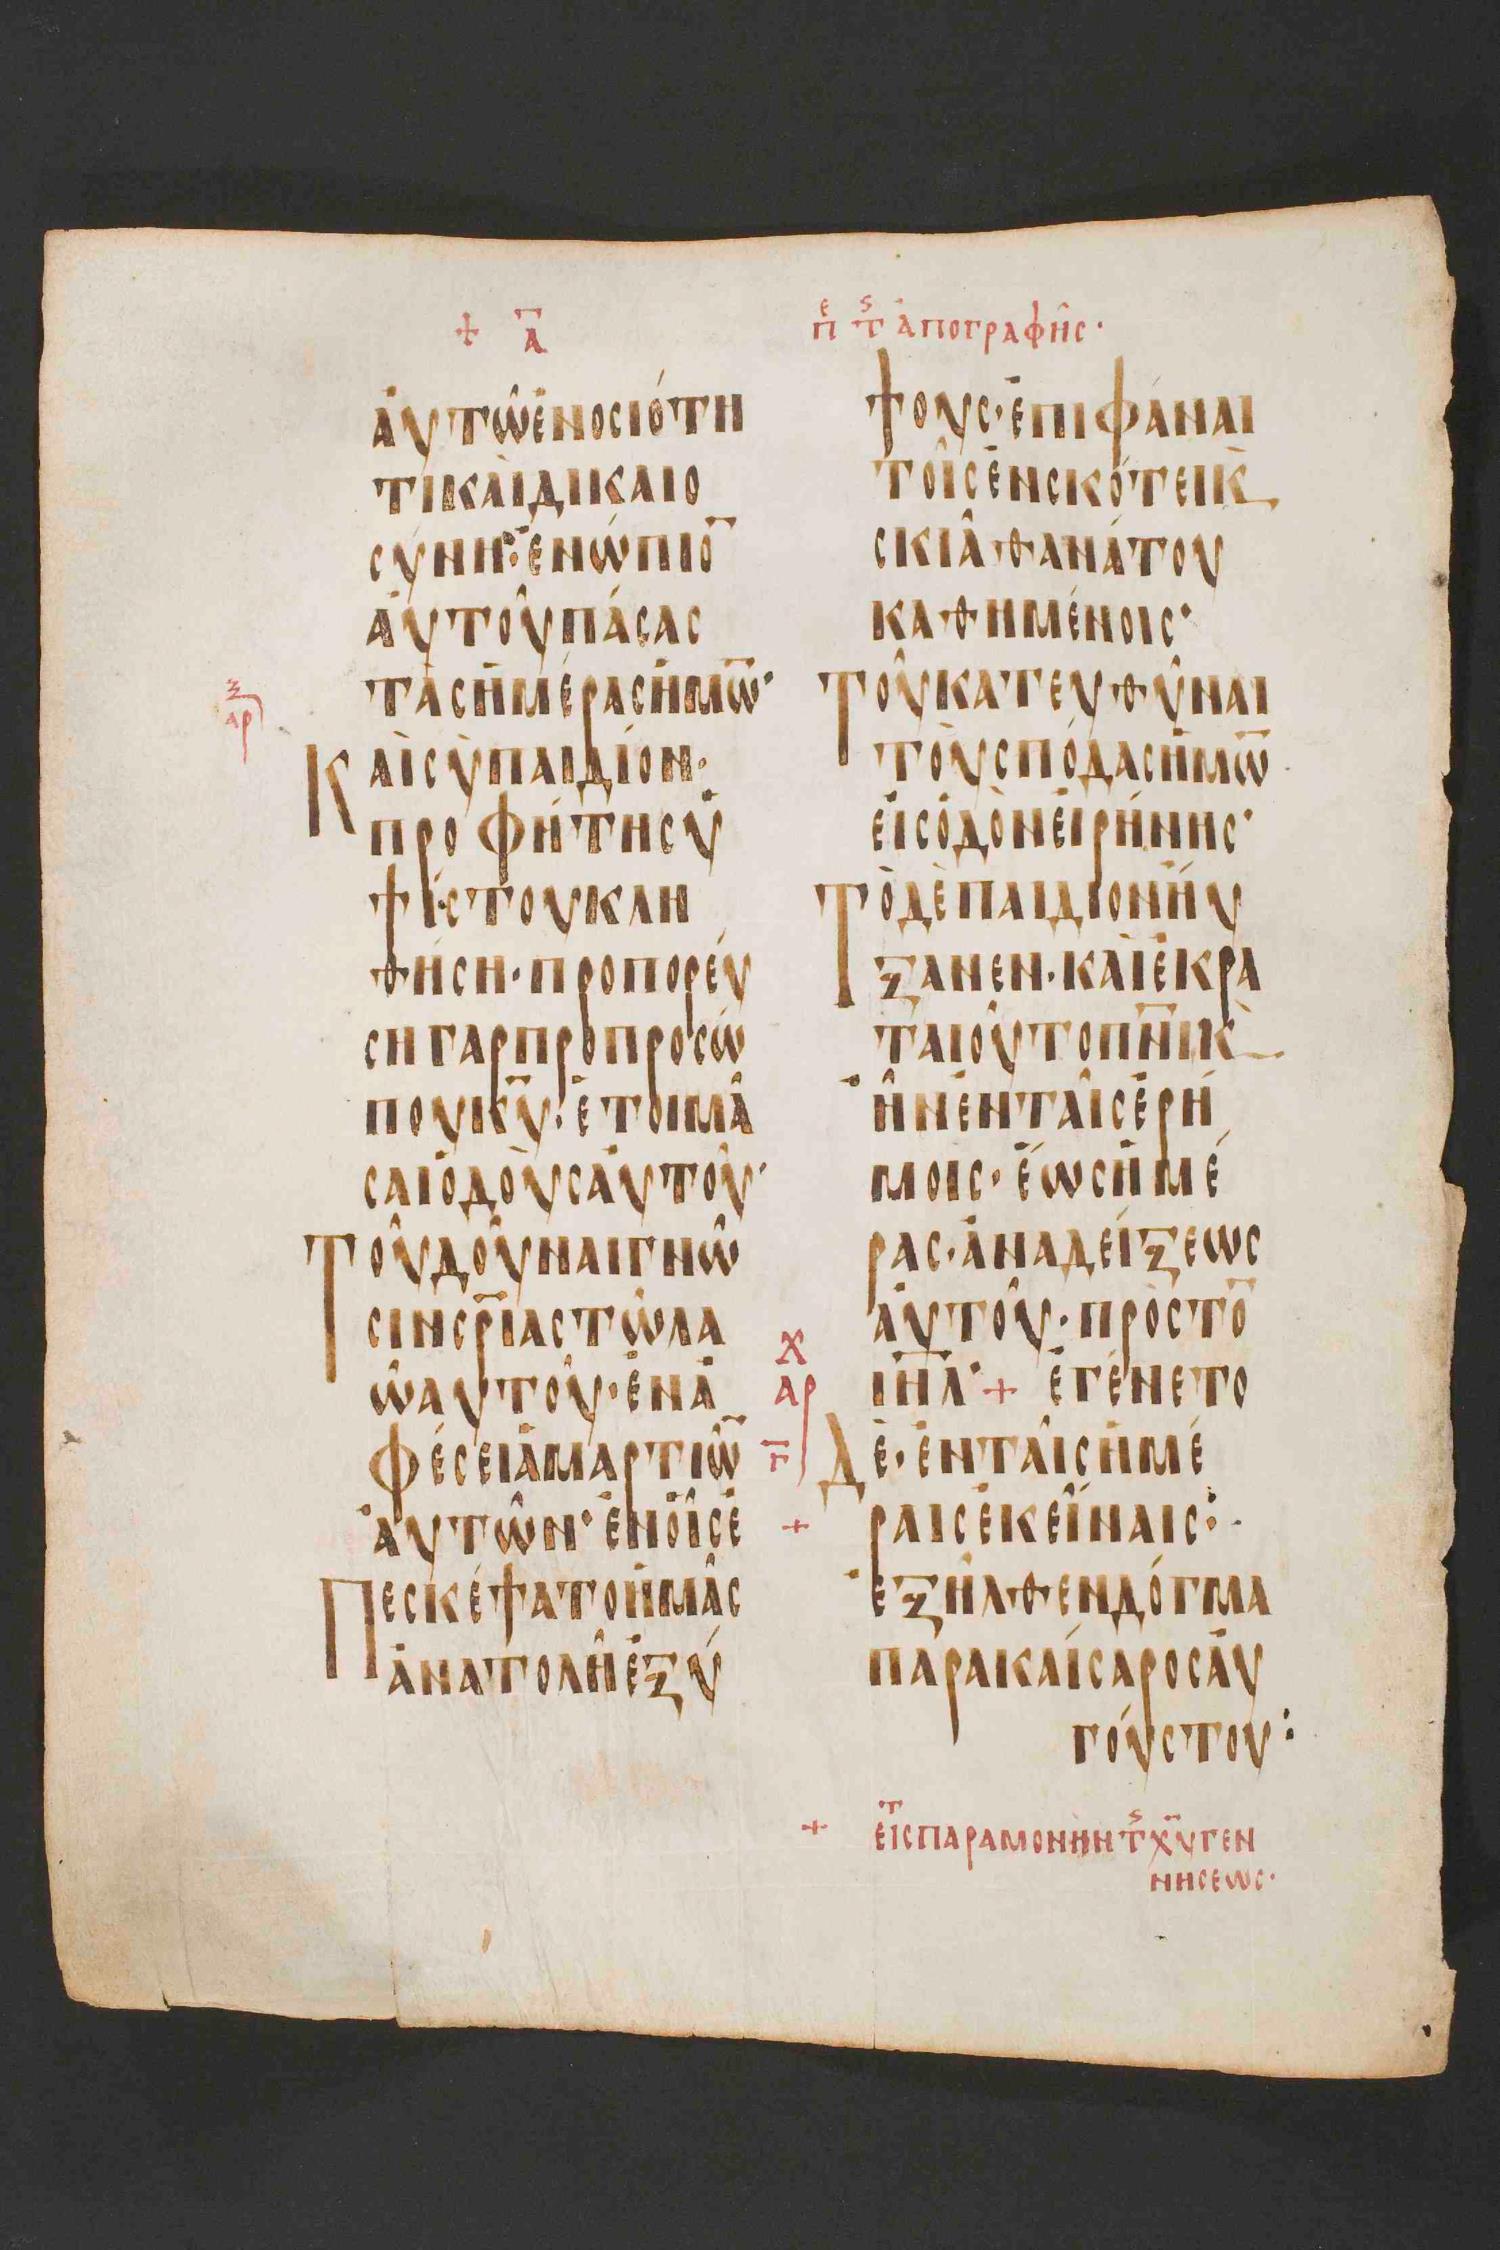 + Α̅
ΑΥΤΩ͂ΕΝΟΣΙΌΤΗ
ΤΙΚΑῚΔΙΚΑΙΟ
ΣΎΝΗ· ΕΝΏΠΙΟ̅
ΑΥΤΟΥ͂ΠΆΣΑΣ
ΤᾺΣΗΜΈΡΑΣΗΜΩ̅·
Ζ
ΑΡ
ΚΑῚΣῪΠΑΙΔΊΟΝ·
ΠΡΟΦΉΤΗΣΥ
ΨΊΣΤΟΥΚΛΗ
ΘΉΣΗ· ΠΡΟΠΟΡΕΎ
ΣΗΓΑΡΠΡΟΠΡΟΣΏ
ΠΟΥΚ̅Υ̅· ΕΤΟΙΜΑ͂
ΣΑΙΟΔΟῪΣΑΥΤΟΥ͂·
ΤΟΥ͂ΔΟΥ͂ΝΑΙΓΝΩ͂
ΣΙΝΣΡ̅ΙΑΣΤΩ͂ΛΑ
Ω͂ΑΥΤΟΥ͂· ΕΝΑ
ΦΈΣΕΙΑΜΑΡΤΙΩ͂̅
ΑΥΤΩ͂Ν· ΕΝΟΙ͂ΣΕ
ΠΕΣΚΈΨΑΤΟΗΜΑ͂Σ
ΑΝΑΤΟΛΗ͂ΕΞΎ
Π̔ε Τς ἈΠΟΓΡΑΦΗ͂Σ·
ΨΟΥΣ· ΕΠΙΦΆΝΑΙ
ΤΟΙ͂ΣΕΝΣΚΌΤΕΙΚ̀
ΣΚΙΑ͂ΘΑΝΆΤΟΥ
ΚΑΘΗΜΈΝΟΙΣ·
ΤΟΥ͂ΚΑΤΕΥΘΥ͂ΝΑΙ
ΤΟῪΣΠΌΔΑΣΗΜΩ̅
ΕΙΣΟΔῸΝΕΙΡΉΝΗΣ·
ΤῸΔῈΠΑΙΔΊΟΝΗΎ
ΞΑΝΕΝ· ΚΑῚΕΚΡΑ
ΤΑΙΟΥ͂ΤΟΠ̅Ν̅ΙΚ̀
Η͂ΝΕΝΤΑΙ͂ΣΕΡΉ
ΜΟΙΣ· ΈΩΣΗΜΈ
ΡΑΣ· ΑΝΑΔΕΊΞΕΩΣ
ΑΥΤΟΥ͂· ΠΡῸΣΤΟ̅
ΙΗ̅Λ· + ΕΓΈΝΕΤΟ
Χ
ΑΡ
Γ̅
ΔῈ· ΕΝΤΑΙ͂ΣΗΜΈ
+ ΡΑΙΣΕΚΕΊΝΑΙΣ:
ΕΞΗ͂ΛΘΕΝΔΌΓΜΑ
ΠΑΡΑΚΑΊΣΑΡΟΣΑΥ
ΓΟΎΣΤΟΥ:
+ ΕΙΣΠΑΡΑΜΟΝῊΝ Τς Χ̅Υ̅ ΓΕΝ
ΝΗΣΕΩΣ·